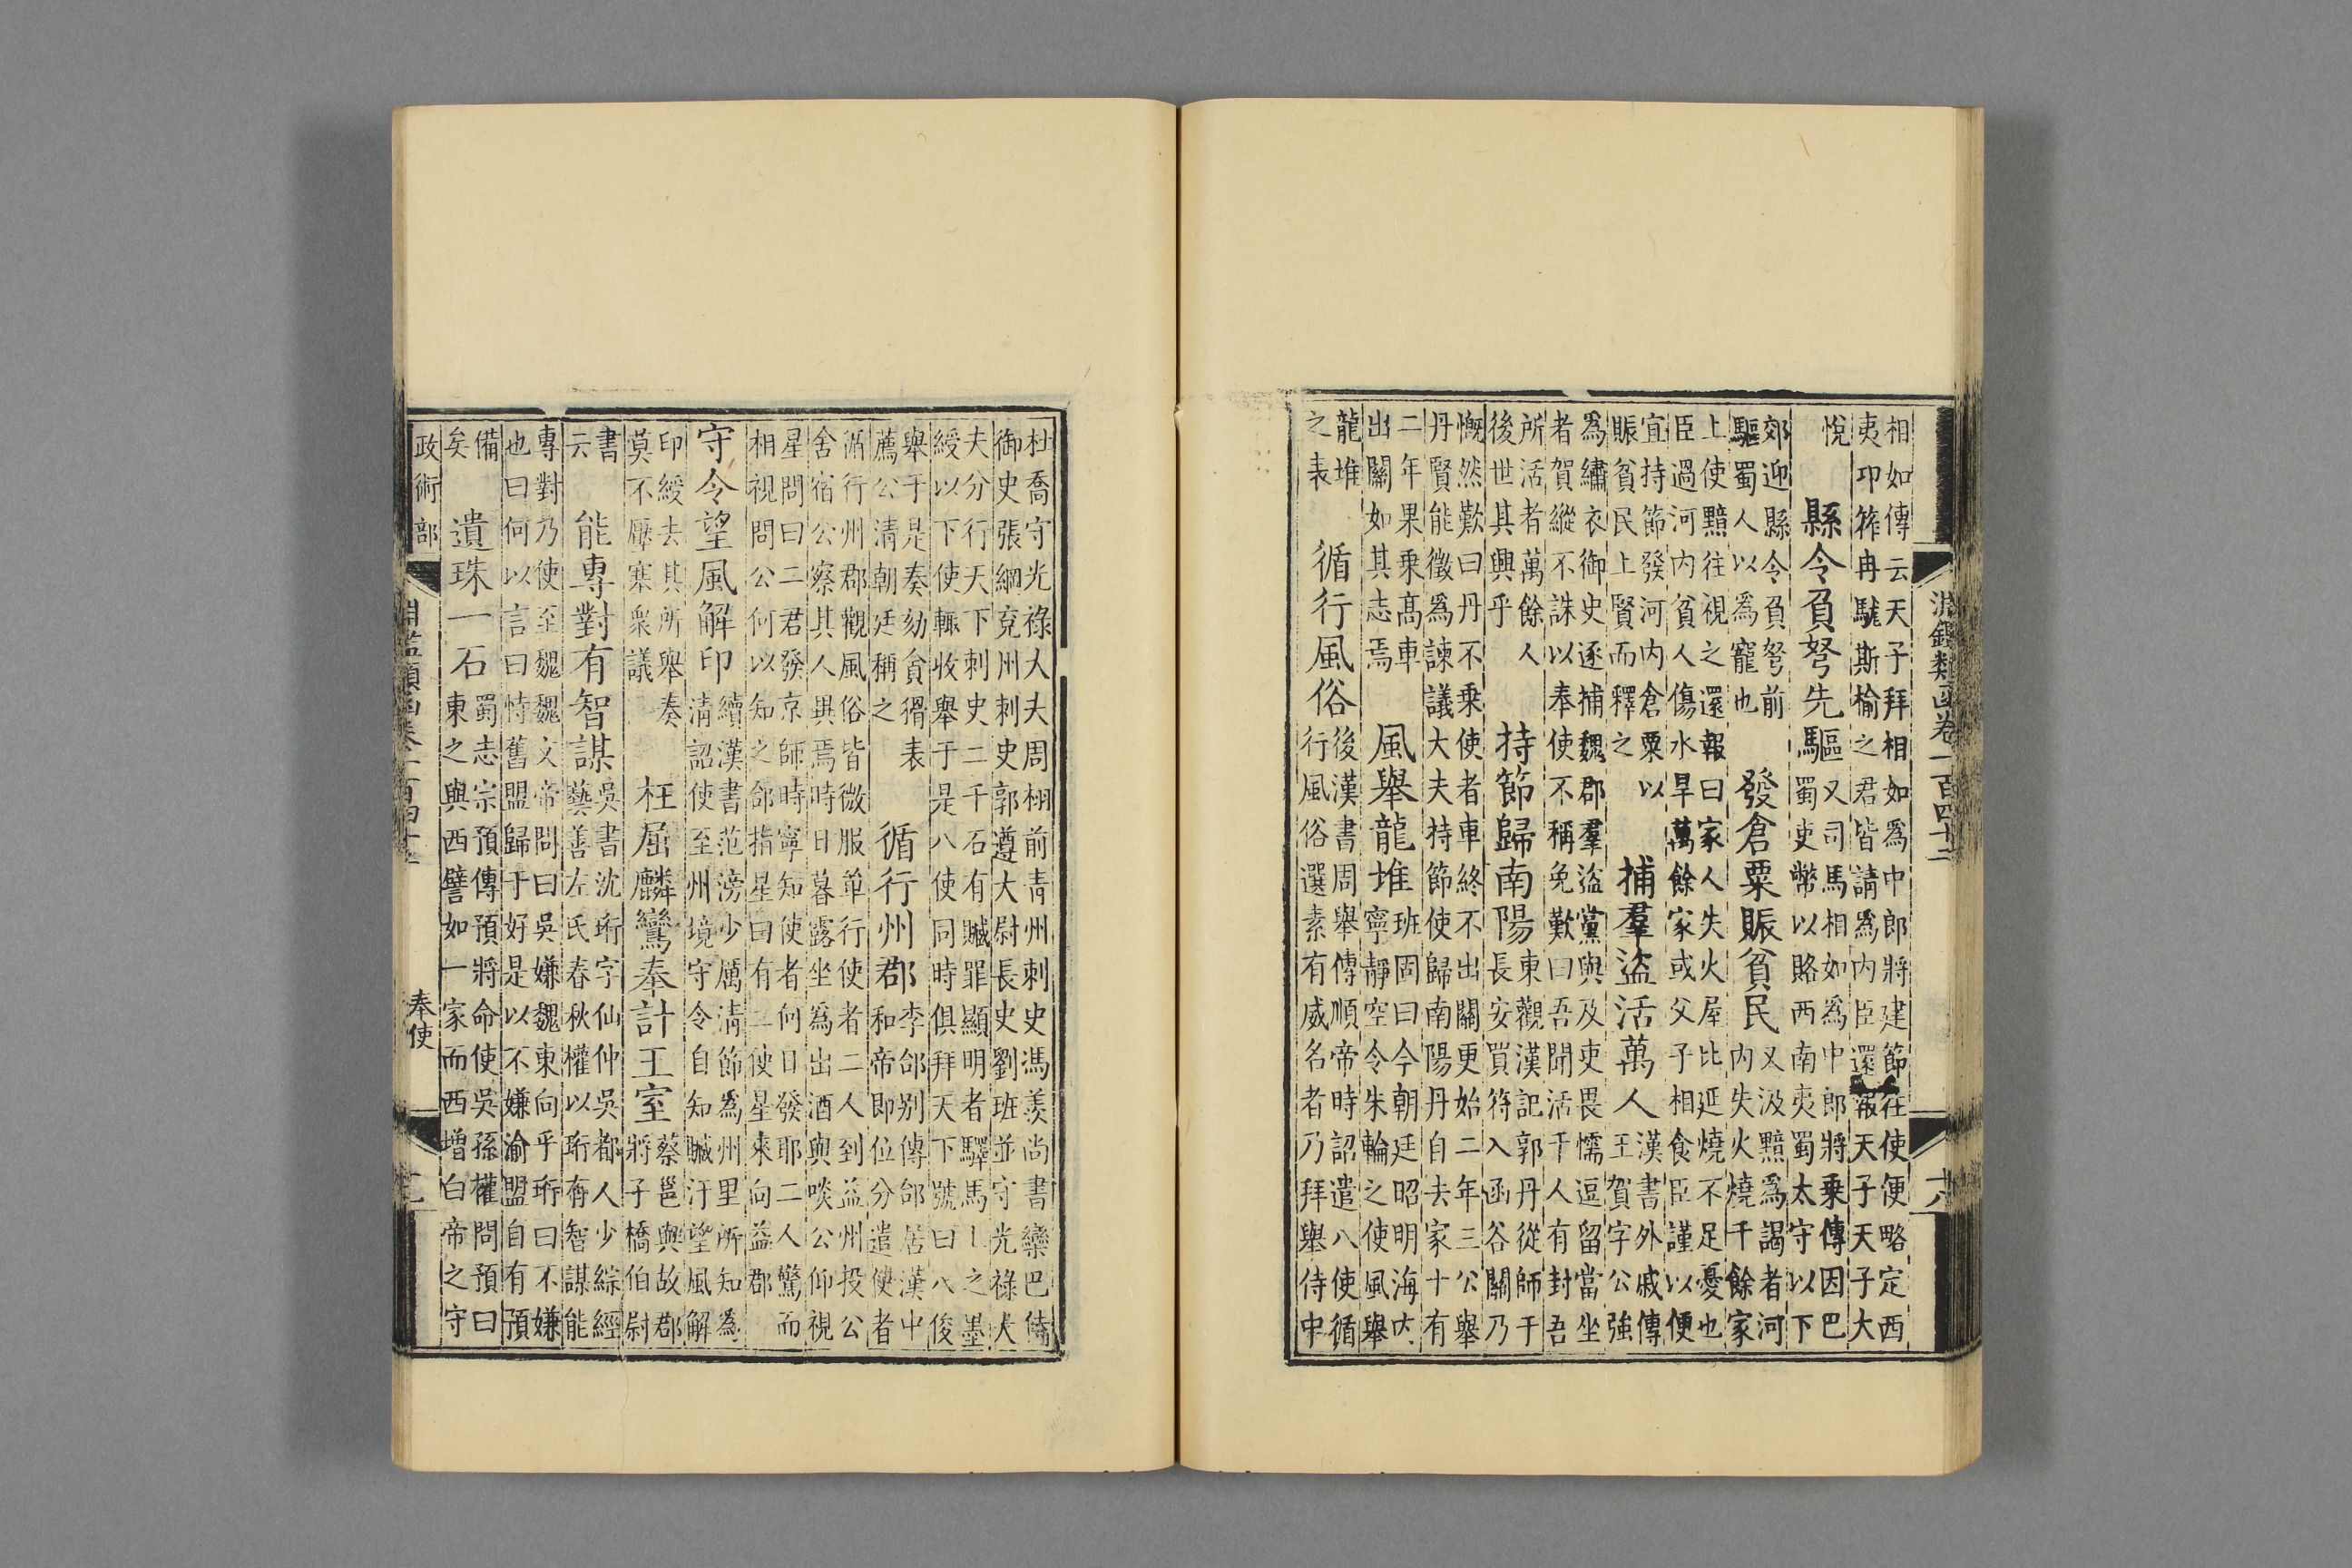 淵鑑類函卷一百四十二
十八
相如傳云天子拜相如為中郎將建節往使便略定西
夷邛筰冉駹斯榆之君皆請為内臣還報天子天子大
悅
縣令負弩先驅
又司馬相如為中郎將乘傳因巴
蜀吏幣以賂西南夷蜀太守以下
郊迎縣令負弩前
驅蜀人以為寵也
發倉粟賑貧民
又汲黯為謁者河
内失火燒千餘家
上使黯往視之還報曰家人失火屋比延燒不足憂也
臣過河内貧人傷水旱萬餘家或父子相食臣謹以便
宜持節發河内倉粟以
賑貧民上賢而釋之
捕羣盜活萬人
漢書外戚傳
王賀字公強
為繡衣御史逐捕魏郡羣盜黨與及吏畏懦逗留當坐
者賀縱不誅以奉使不稱免歎曰吾聞活千人有封吾
所活者萬餘人
後世其興乎
持節歸南陽
東觀漢記郭丹從師于
長安買符入函谷關乃
慨然歎曰丹不乘使者車終不出關更始二年三公舉
丹賢能徵為諫議大夫持節使歸南陽丹自去家十有
二年果乘高車
出關如其志焉
風舉龍堆
班固曰今朝廷昭明海内
寧靜空令朱輪之使風舉
龍堆
之表
循行風俗
後漢書周舉傳順帝時詔遣八使循
行風俗選素有威名者乃拜舉侍中
杜喬守光祿大夫周栩前青州刺史馮羨尚書欒巴侍
御史張綱兗州刺史郭遵大尉長史劉班並守光祿大
夫分行天下刺史二千石有贓罪顯明者驛馬上之墨
綬以下使輒收舉于是八使同時俱拜天下號曰八俊
舉于是奏劾貪猾表
薦公清朝廷稱之
循行州郡
李郃别傳郃居漢中
和帝即位分遣使者
循行州郡觀風俗皆微服單行使者二人到益州投公
舍宿公察其人異焉時日暮露坐為出酒與啖公仰視
星問曰二君發京師時寧知使者何日發耶二人驚而
相視問公何以知之郃指星曰有二使星來向益郡
守令望風解印
續漢書范滂少厲清節為州里所知為
清詔使至州境守令自知贓汙望風解
印綬去其所舉奏
莫不壓塞衆議
枉屈麟鸞奉計王室
蔡邕與故郡
將子橋伯尉
書
云
能專對有智謀
吳書沈珩字仙仲吳都人少綜經
藝善左氏春秋權以珩有智謀能
專對乃使至魏魏文帝問曰吳嫌魏東向乎珩曰不嫌
也曰何以言曰恃舊盟歸于好是以不嫌渝盟自有預
備
矣
遺珠一石
蜀志宗預傳預將命使吳孫權問預曰
東之與西譬如一家而西增白帝之守
政術部
奉使